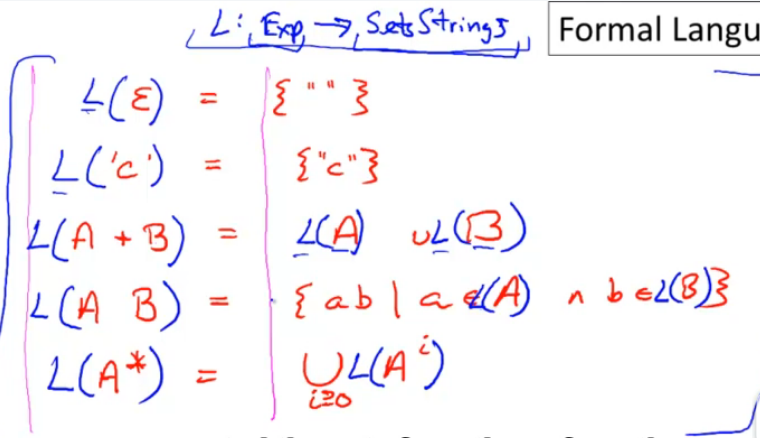 L: Exp → Sets Strings
Formal Langu
L(ε) = {""}
L('c') = {"c"}
L(A + B) = L(A) ∪ L(B)
L(A B) = {ab | a ∈ L(A) ∧ b ∈ L(B)}
L(A*) = ⋃i≥0 L(Aⁱ)